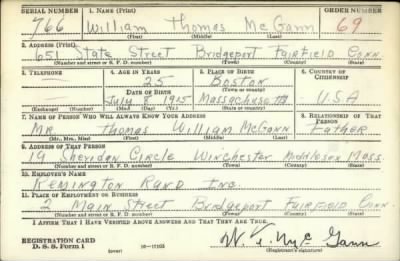 SERIAL NUMBER 1. NAME (Print) ORDER NUMBER
766 William Thomas McGann 69
(First) (Middle) (Last)
2. ADDRESS (Print)
651 State Street Bridgeport Fairfield Conn
(Number and street or R. F. D. number) (Town) (County) (State)
3. TELEPHONE 4. AGE IN YEARS 5. PLACE OF BIRTH 6. COUNTRY OF CITIZENSHIP
25 Boston
(Town or county)
DATE OF BIRTH
July 1915 Massachusetts U.S.A
(Exchange) (Number) (Mo.) (Day) (Yr.) (State or country)
7. NAME OF PERSON WHO WILL ALWAYS KNOW YOUR ADDRESS 8. RELATIONSHIP OF THAT PERSON
Mr. Thomas William McGann Father
(Mr., Mrs., Miss) (First) (Middle) (Last)
9. ADDRESS OF THAT PERSON
19 Sheridan Circle Winchester Middlesex Mass.
(Number and street or R. F. D. number) (Town) (County) (State)
10. EMPLOYER'S NAME
Remington Rand Inc.
11. PLACE OF EMPLOYMENT OR BUSINESS
2 Main Street Bridgeport Fairfield Conn.
(Number and street or R. F. D. number) (Town) (County) (State)
I AFFIRM THAT I HAVE VERIFIED ABOVE ANSWERS AND THAT THEY ARE TRUE.
REGISTRATION CARD
D. S. S. Form 1 (over) W. T. McGann